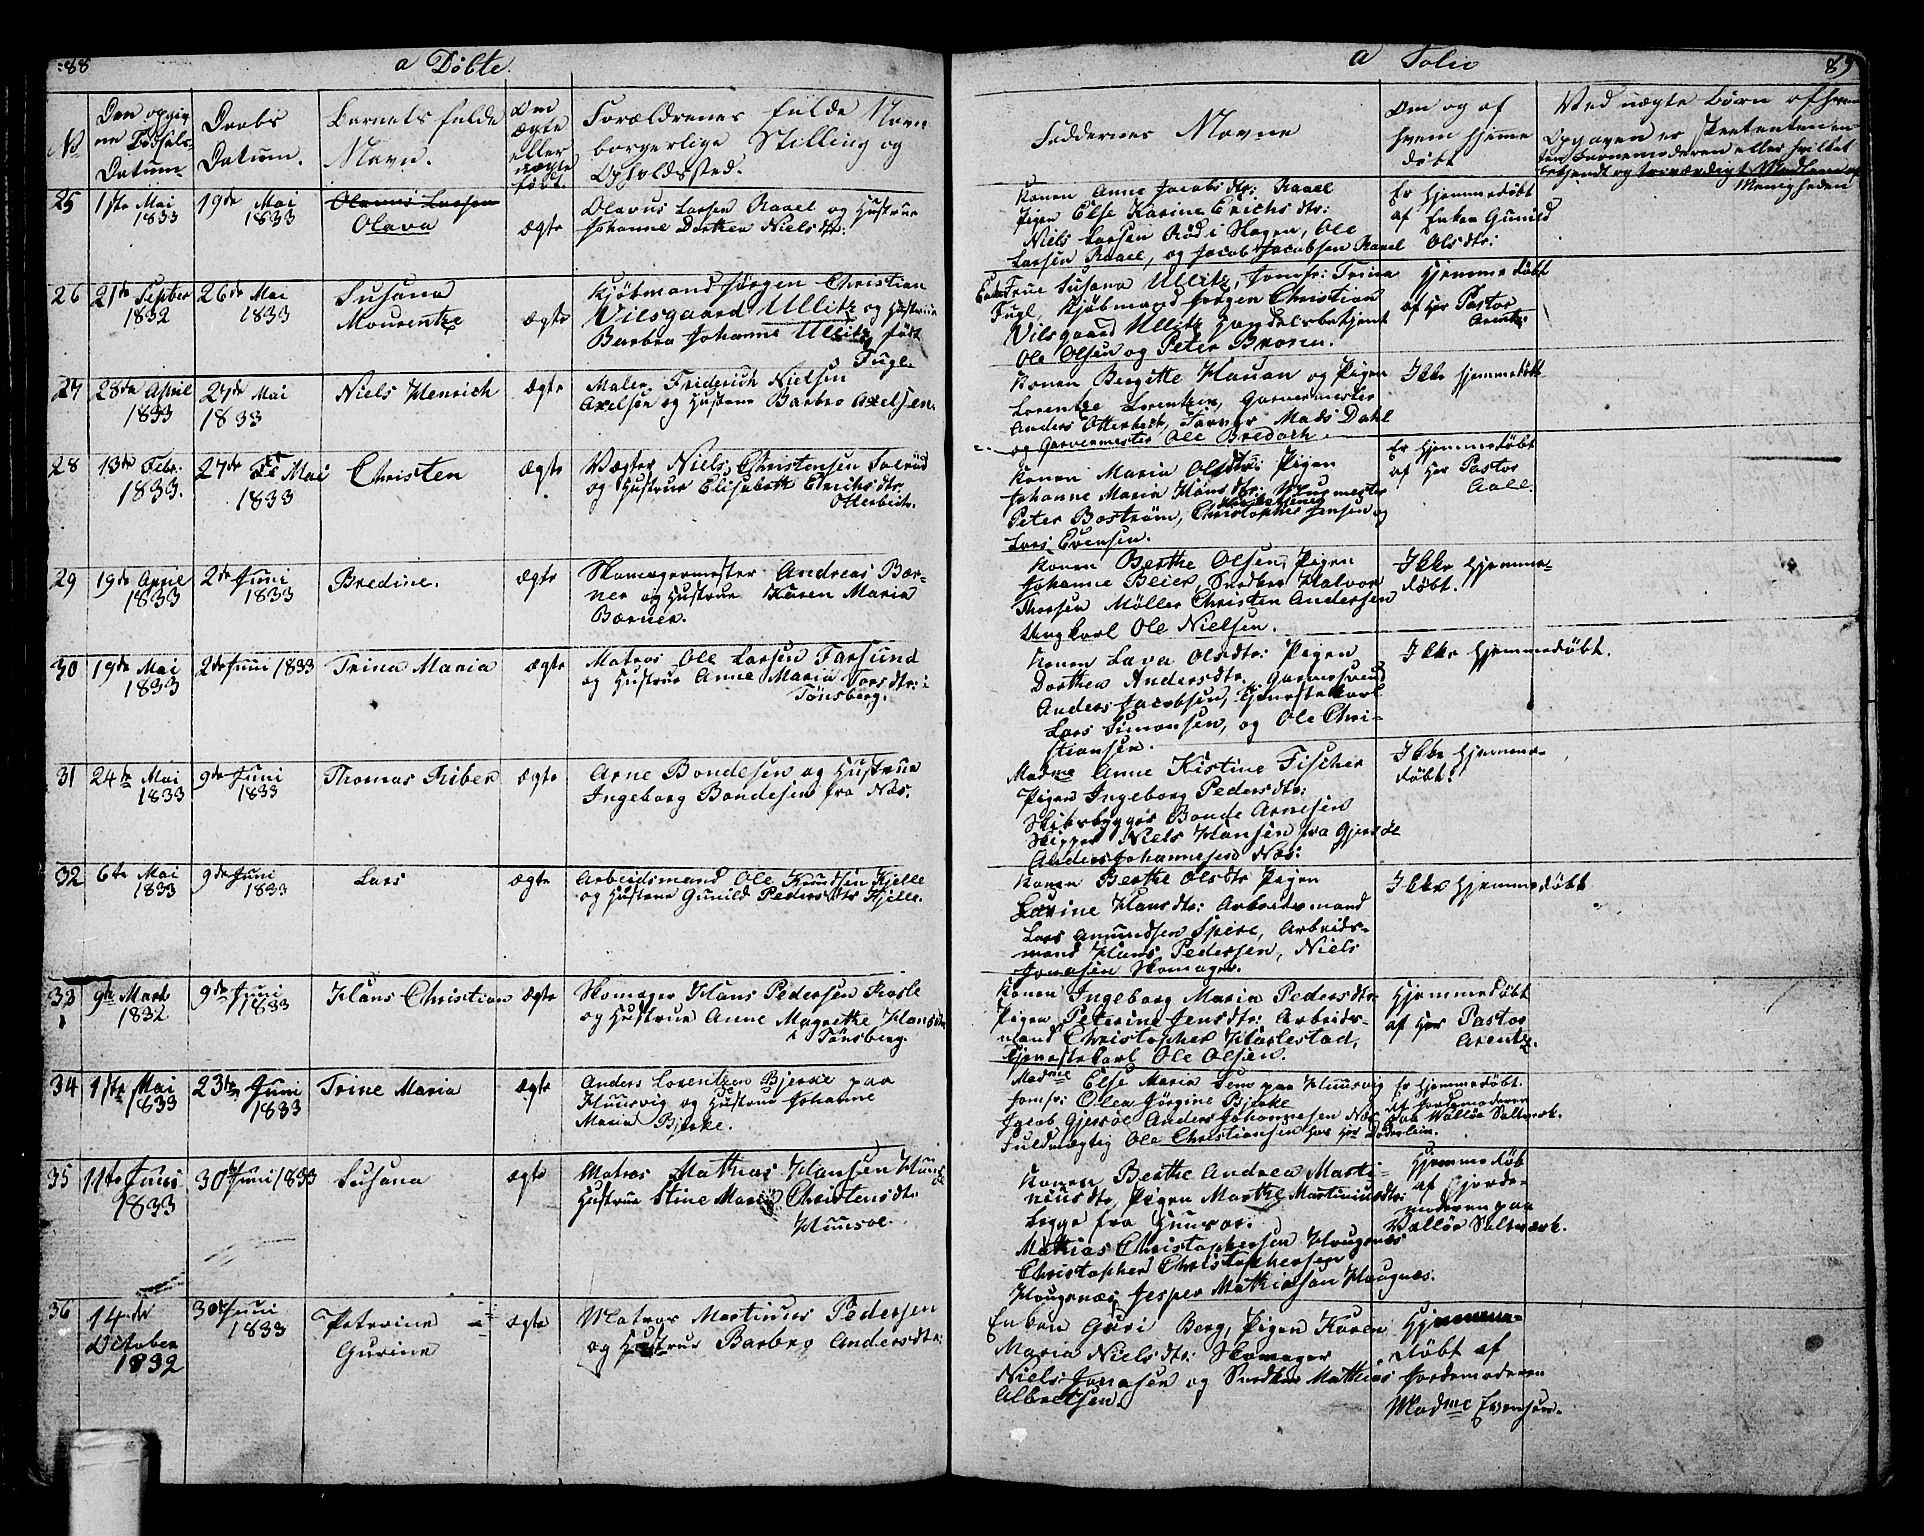 88
a Døbte.
No
Den opgiv
ne Fødsels-
Datum
Daabs
Datum.
Barnets fulde
Navn.
Om
ægte
eller
uægte
født.
Forældrenes fulde Navn
borgerlige Stilling og
Opholdssted.
25
1ste Mai
1833
19de Mai
1833
Olavus Larsen
Olava
ægte
Olavus Larsen Raael og Hustrue
Johanne Dorthea Nielsdtr:
26
21de Septbr
1832
26de Mai
1833
Susana
Mourentze
ægte
Kjøbmand Jørgen Christian
Vilsgaard Ullitz og Hustrue
Barbra Johanne Ullitz født
Fugl.
27
28de April
1833
27de Mai
1833
Niels Henrich
ægte
Maler Friderich Nielsen
Axelsen og Hustrue Barbro Axelsen.
28
13de Febr:
1833.
27de Mai
1833
Christen
ægte
Vægter Niels Christensen Solrüd
og Hustrue Elisabeth Erichsdtr.
Otterbech.
29
19de
1833
2de Juni
1833
Bredine.
ægte
Skomagermester Andreas Bær-
ner og Hustrue Karen Maria
Bærner.
30
19de Mai
1833
2de Juni 1833
Trina Maria
ægte
Matros Ole Larsen Farsund
og Hustrue Anne Maria Torsdtr: i
Tønsberg.
31
24de Mai
1833
9de Juni
1833
Thomas Riber
ægte
Arne Bondesen og Hustrue
Ingeborg Bondesen fra Næs.
32
6te Mai
1833
9de Juni
1833
Lars
ægte
Arbeidsmand Ole Knudsen Hjelle
og Hustrue Gunild Pedersdtr Hjelle.
33
9de Marts
1832
9de Juni
1833
Hans Christian
ægte
Skomager Hans Pedersen
og Hustrue Anne Magrethe Hansdtr
i Tønsberg.
34
1ste Mai
1833
23de Juni
1833
Trine Maria
ægte
Anders Lorentzen Bjerke paa
Huusvig og Hustrue Johanne
Maria Bjerke.
35
11te Juni
1833
30de Juni 1833
Susana
ægte
Matros Mathias Hansen
Hustrue Stine Maria Christensdtr:
Huusøe.
36
14de
October
1832
30de Juni
1833
Petrine
Gurine
ægte
Matros Martinius Pedersen
og Hustrue Barbro Andersdtr:
a Folio
89
Faddernes Navne
Om og af
hvem hjeme
døbt
Ved uægte Børn af hvem
Opgaven er
den Barnemoderen eller hvilket
bekjendt og troværdigt Medlem af
Menigheden
Konen Anne Jacobsdtr: Raael
Pigen Else Karine Erichsdtr:
Niels Larsen Rød i Slagen, Ole
Larsen Raael, og Jacob Jacobsen Raael
Er hjemmedøbt
af Enken Gunild
Olsdtr:
Enkefrue Susana Ullitz, Jomfr: Trina
Fugl, Kjøbmand Jørgen Christian
Vilsgaard Ullitz Handelsbetjent
Ole Olsen og Peter Bronn.
Hjemmedøbt
af Her Pastor
Arentz:
Konen Bergitte Hauan og Pigen
Lorentze Lorentzen, Garvermester
Anders Otterbech, Farver Mads Dahl
og Garvermester Ole Bredoch.
Ikke hjemmedøbt
Konen Maria Olsdtr: Pigen
Johanne Maria Hansdtr: Muurmester
Peter Bostrøm, Christopher Jensen og
Lars Evensen.
Er hjemmedøbt
af Her Pastor
Aall.
Konen Berthe Olsen, Pigen
Johanne Beier, Snedker Halvor
Thorsen Møller Christen Andersen
Ungkarl Ole Nielsen.
Ikke hjemme-
døbt.
Konen Lava Olsdtr: Pigen
Dorthea Andersdtr. Garversvend
Anders Jacobsen, Tjenestekarl
Lars Simonsen, og Ole Chri-
stiansen.
Ikke hjemmedøbt.
Madme Anne Kistine Fischer
Pigen Ingeborg Pedersdtr:
Skibsbygger Bonde Arnesen
Skipper Niels Hansen fra Gjersøe
Anders Johannesen Næs:
Ikke hjemme-
døbt.
Konen Berthe Olsdtr Pigen
Lavine Hansdtr: Arbeidsmand
Lars Amundsen Speie, Arbeids-
mand Hans Pedersen, Niels
Jonasen Skomager.
Ikke hjemmedøbt
Konen Ingeborg Maria Pedersdtr:
Pigen Peterine Jensdtr: Arbeids-
mand Christopher Harlestad,
Tjenestekarl Ole Olsen.
Hjemmedøbt
af Her Pastor
Arentz.
Madme Else Maria Sem paa Huusvig
Jomfr: Olea Jørgine Bjerke
Jacob Gjersøe Anders Johannesen Næs
Fuldmægtig Ole Christiansen hos Hr: Døderlein.
Er hjemmedøbt.
af Jordemoderen
paa Valløe Saltværk.
Konen Berthe Andrea Marti-
niusdtr, Pigen Marthe Martiniusdtr:
begge fra Huusøe:
Mathias Christophersen Hougnæs
Christopher Christophersen
Hougnæs, Jesper Mathiasen Hougnæs.
Hjemmedøbt
af Gjorde-
moderen paa
Valløe Saltværk.
Enken Guri Berg, Pigen Karen
Maria Nielsdtr: Skomager
Niels Jonasen og Snedker Mathias
Albretsen.
Hjemme-
døbt af
Jordemoderen
Madme Evensen.